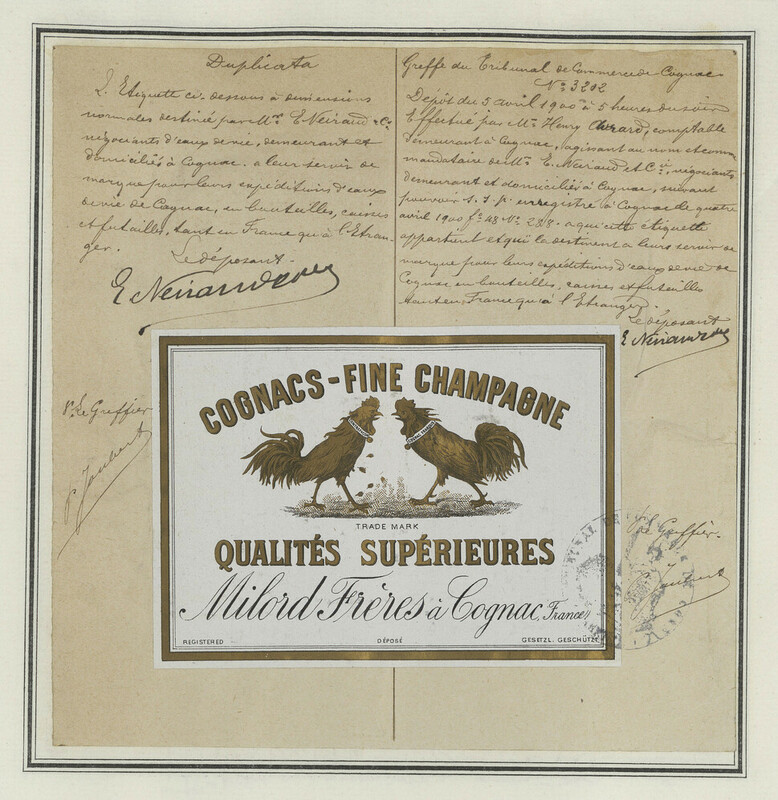 Duplicata
L'Etiquette ci-dessous à dimensions
normales destinée par Mrs E. Neiraud & Cie
négociants d'eaux de vie, demeurant et
domiciliés à Cognac. a leur servir de
marque pour leurs expéditions d'eaux
de vie de Cognac, en bouteilles, caisses
et futailles, tant en France qu'à l'Etran-
ger.
Le déposant.
Greffe du Tribunal de Commerce de Cognac
No 3202
Dépôt du 5 avril 1900 à 5 heures du soir
Effectué par Mr Henry comptable
demeurant à Cognac, agissant au nom et comme
mandataire de Mrs E. Neiraud et Cie, négociants
demeurant et domiciliés à Cognac, suivant
pouvoir s. s. p. enregistré à Cognac le quatre
avril 1900 fo 48 a qui cette étiquette
appartient et qui la destinent a leurs servir de
marque pour leurs expéditions d'eaux de vie de
Cognac en bouteilles, caisses et futailles
tant en France qu'à l'Etranger.
Le déposant
Pr Le Greffier
Joubert
COGNACS-FINE CHAMPAGNE
TRADE MARK
QUALITÉS SUPÉRIEURES
Milord Frères à Cognac, (France)
REGISTERED DÉPOSÉ GESETZL. GESCHÜTZT
Le Greffier.
Joubert